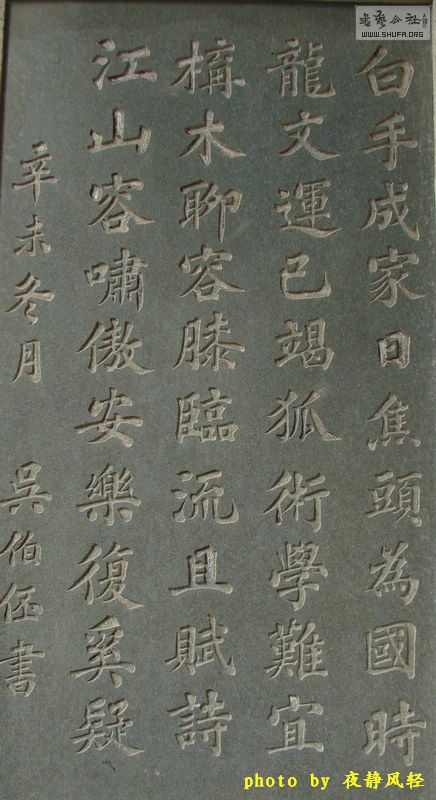 白手成家日焦頭為國時
龍文運已竭狐術學難宜
構木聊容膝臨流且賦詩
江山容嘯傲安樂復奚疑
辛未冬月 吳伯伍書
書藝公社
WWW.SHUFA.ORG
photo by 夜静风轻